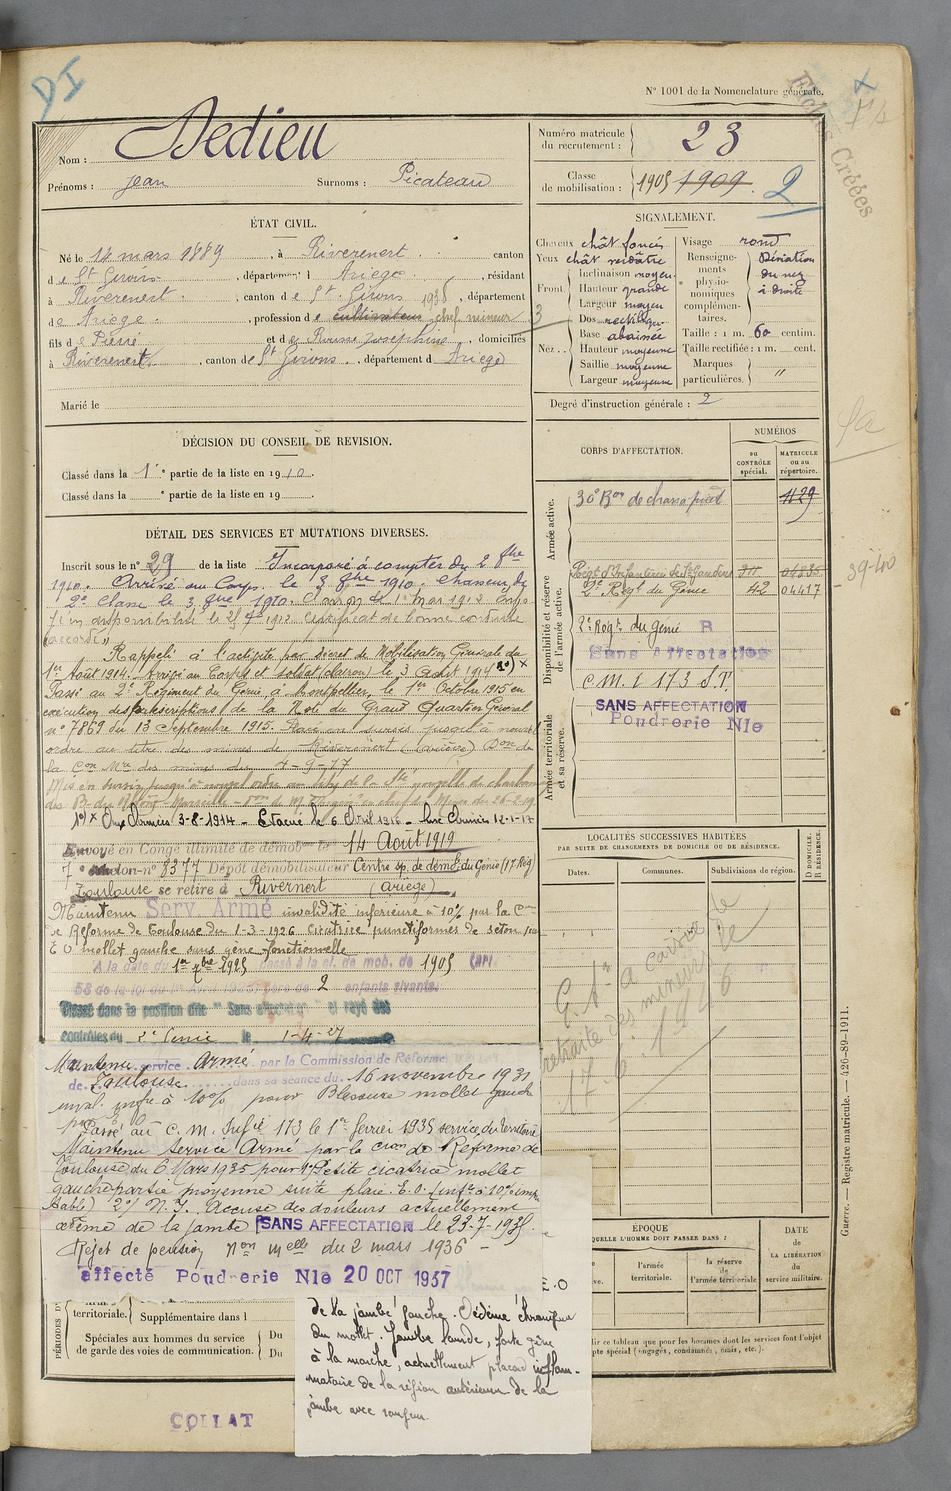 DI
N° 1001 de la Nomenclature générale.
Fiches Créées
Nom : Dedieu
Prénoms : Jean Surnoms : Picateau
Numéro matricule du recrutement : 23
Classe de mobilisation : 1905 1909. 2
ÉTAT CIVIL.
Né le 14 mars 1889, à Riverenert, canton
de St Girons, département d Ariège, résidant
à Riverenert, canton de St Girons 1938, département
de Ariège, profession de cultivateur chef mineur
fils de Pierre et de Rousse Joséphine, domiciliés
à Riverenert, canton de St Girons, département d Ariège
Marié le
SIGNALEMENT.
Cheveux chât foncés
Yeux chât verdâtre
Front Inclinaison moyen.
Hauteur grande
Largeur moyen
Nez Dos rectiligne
Base abaissée
Hauteur moyenne
Saillie moyenne
Largeur moyenne
Visage rond
Renseignements physionomiques complémentaires. Déviation du nez à droite
Taille : 1 m. 60 centim.
Taille rectifiée : 1 m. cent.
Marques particulières. "
Degré d'instruction générale : 2
DÉCISION DU CONSEIL DE REVISION.
Classé dans la 1e partie de la liste en 1910.
Classé dans la e partie de la liste en 19
CORPS D'AFFECTATION.
NUMÉROS
AU CONTRÔLE spécial.
MATRICULE ou au répertoire.
Armée active.
30e Bon de chass à pied 1129
Disponibilité et réserve de l'armée active.
Régt d'Infanterie de St Gaudens 04835
2e Régt du Génie 42 04417
2e Régt du génie R
Sans Affectation
C.M.I 173 S.T.
Armée territoriale et sa réserve.
SANS AFFECTATION
Poudrerie Nle
39-40
DÉTAIL DES SERVICES ET MUTATIONS DIVERSES.
Inscrit sous le n° 29 de la liste Incorporé à compter du 2 8bre
1910. Arrivé au Corps le 3 8bre 1910. Chasseur de
2e classe le 3 8bre 1910. Clairon le 1er Mai 1912
en disponibilité le Certificat de bonne conduite
"accordé"
Rappelé à l'activité par décret de Mobilisation Générale du
1er Août 1914. Arrivé au Corps et soldat clairon le 3 Août 1914 1°) x
Passé au 2e Régiment du Génie à Montpellier, le 1er Octobre 1915 en
exécution des prescriptions de la Note du Grand Quartier Général
n° 7869 du 13 Septembre 1915. Placé en sursis jusqu'à nouvel
ordre au titre des mines de Riverenert (Ariège) Don de
la Con Mre des mines du 4-9-17
Mis en sursis jusqu'à nouvel ordre
1°) x Aux Armées 3-8-1914 - Evacué le 6 Avril 1916
Envoyé en Congé illimité de démobon le 14 Août 1919
7e échelon n° 8377 Dépôt démobilisateur Centre sp. de démob. du Génie (17 Rég)
Toulouse se retire à Rivernert (Ariège)
Maintenu Serv. Armé invalidité inférieure à 10% par la Con
de Réforme de Toulouse du 1-3-1926 Cicatrice punctiformes de seton
E O mollet gauche sans gêne fonctionnelle
A la date du 1er 1925 passé à la cl. de mob. de 1905 (art.
58 de la loi du 1er Avril 1923) père de 2 enfants vivants.
Classé dans la position dite "Sans affectation" et rayé des
contrôles du 2e Génie le 1-4-27
Maintenu service Armé par la Commission de Réforme
de Toulouse dans sa séance du 16 novembre 1931
inval. infre à 10% pour Blessure mollet gauche
Passé au C.M. Inf ie 173 le 1er février 1935 service du territoire
Maintenu Service Armé par la Cion de Réforme de
Toulouse du 6 Mars 1935 pour 1° Petite cicatrice mollet
gauche partie moyenne suite plaie. E.O. (infre à 10%
2°/ N.I. Accuse des douleurs actuellement
œdème de la jambe SANS AFFECTATION le 23-7-1935.
Rejet de pension Non Melle du 2 mars 1936 -
affecté Poudrerie Nle 20 OCT 1937
LOCALITÉS SUCCESSIVES HABITÉES
PAR SUITE DE CHANGEMENTS DE DOMICILE OU DE RÉSIDENCE.
Dates. Communes. Subdivisions de région.
D DOMICILE. R RÉSIDENCE.
caisse de
retraite des mineurs
17-6-1946
ÉPOQUE
QUELLE L'HOMME DOIT PASSER DANS :
l'armée territoriale.
la réserve de l'armée territoriale
DATE de LA LIBÉRATION du service militaire.
E.O
PÉRIODES D
territoriale. Supplémentaire dans l
Spéciales aux hommes du service de garde des voies de communication. Du
Du
lir ce tableau que pour les hommes dont les services font l'objet
pte spécial (engagés, condamnés, omis, etc.).
de la jambe gauche. Œdème chronique
du mollet. Jambe lourde, forte gêne
à la marche, actuellement placard inflam-
matoire de la région antérieure de la
jambe avec rougeur.
COLLAT
Guerre. — Registre matricule. — 426-89-1911.